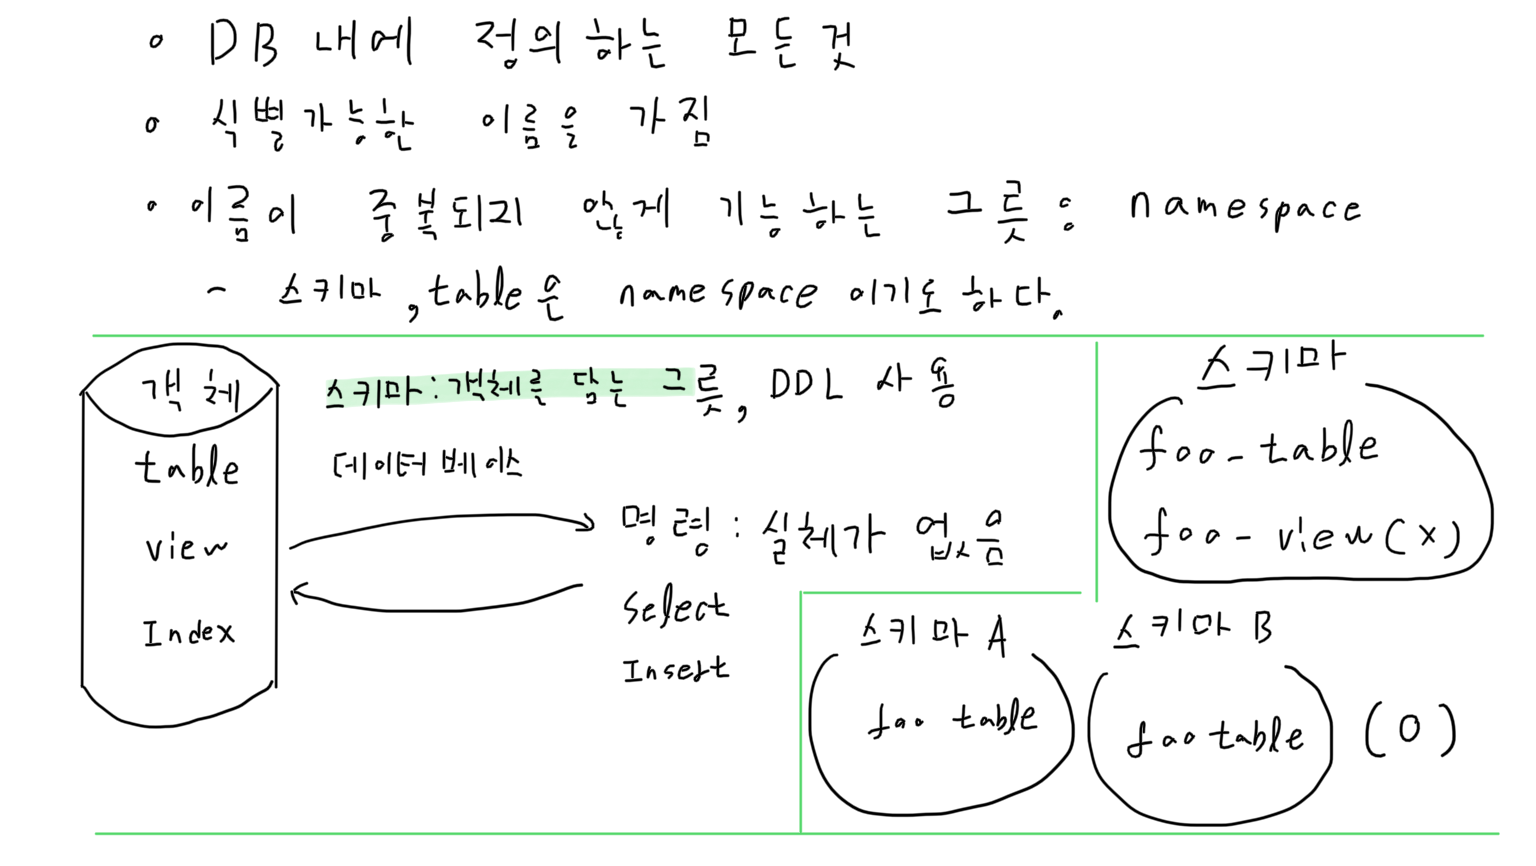 • DB 내에 정의하는 모든것
• 식별가능한 이름을 가짐
• 이름이 중복되지 않게 기능하는 그릇 : namespace
- 스키마, table은 namespace 이기도 하다.
객체
table
view
Index
스키마 : 객체를 담는 그릇, DDL 사용
데이터베이스
명령 : 실체가 없음
Select
Insert
스키마
foo-table
foo-view(x)
스키마 A
foo table
스키마 B
foo table
(O)